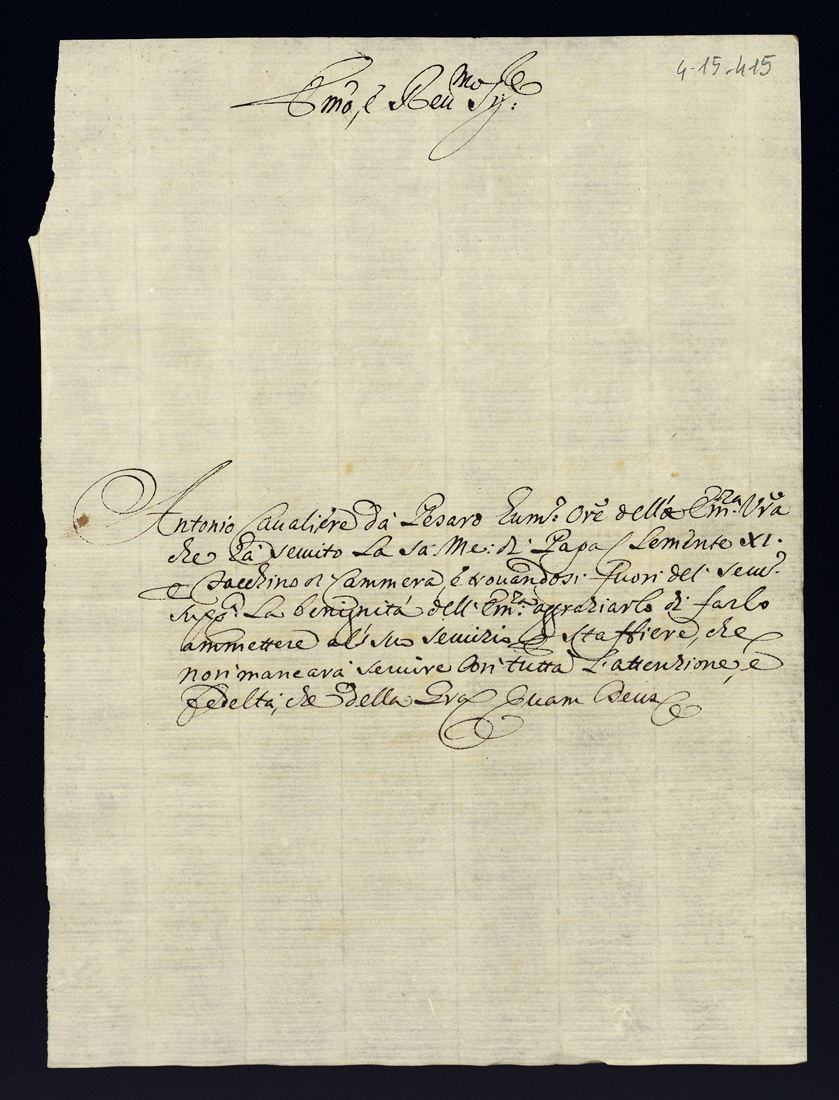 4-15-415
Emo, è Reumo Sige:
Antonio Caualiére da' Pesaro Hum:o Ore dell'Em:za Vra
che há seruito La Sa: Me: di Papa Clemente XI.
p facchino di Cammera, è trouandosi fuori del seru:o
supp:a La benignitá dell'Em:za aggraziarlo di farlo
ammettere al' suo seruizio p staffiere, che
non mancará seruire con tutta l'attenzione, è
fedeltá, che della Gra Quam Deus